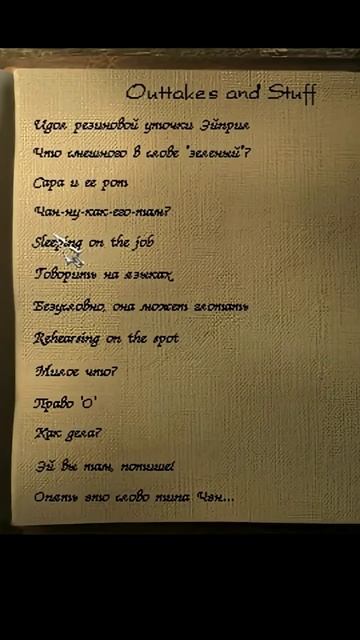 Outtakes and Stuff
Идол резиновой уточки Эйприл
Что смешного в слове "зеленый"?
Сара и ее рот
Чан-ну-как-его-там?
Sleeping on the job
Говорить на языках
Безусловно, она может глотать
Rehearsing on the spot
Милое что?
Право 'О'
Как дела?
Эй вы там, потише!
Опять это слово типа Чэн...